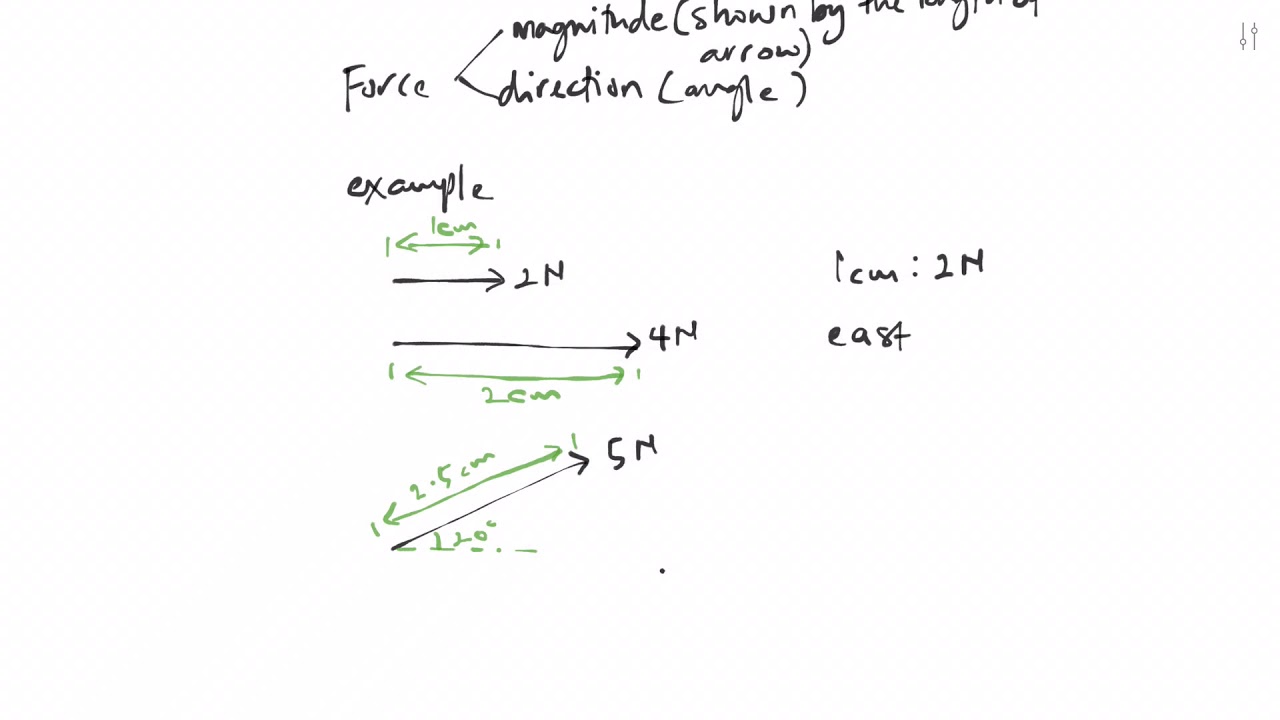 magnitude (shown by the length of
arrow)
Force
direction (angle)
example
1cm
2N
1cm : 2N
4N
east
2cm
5N
2.5cm
20°